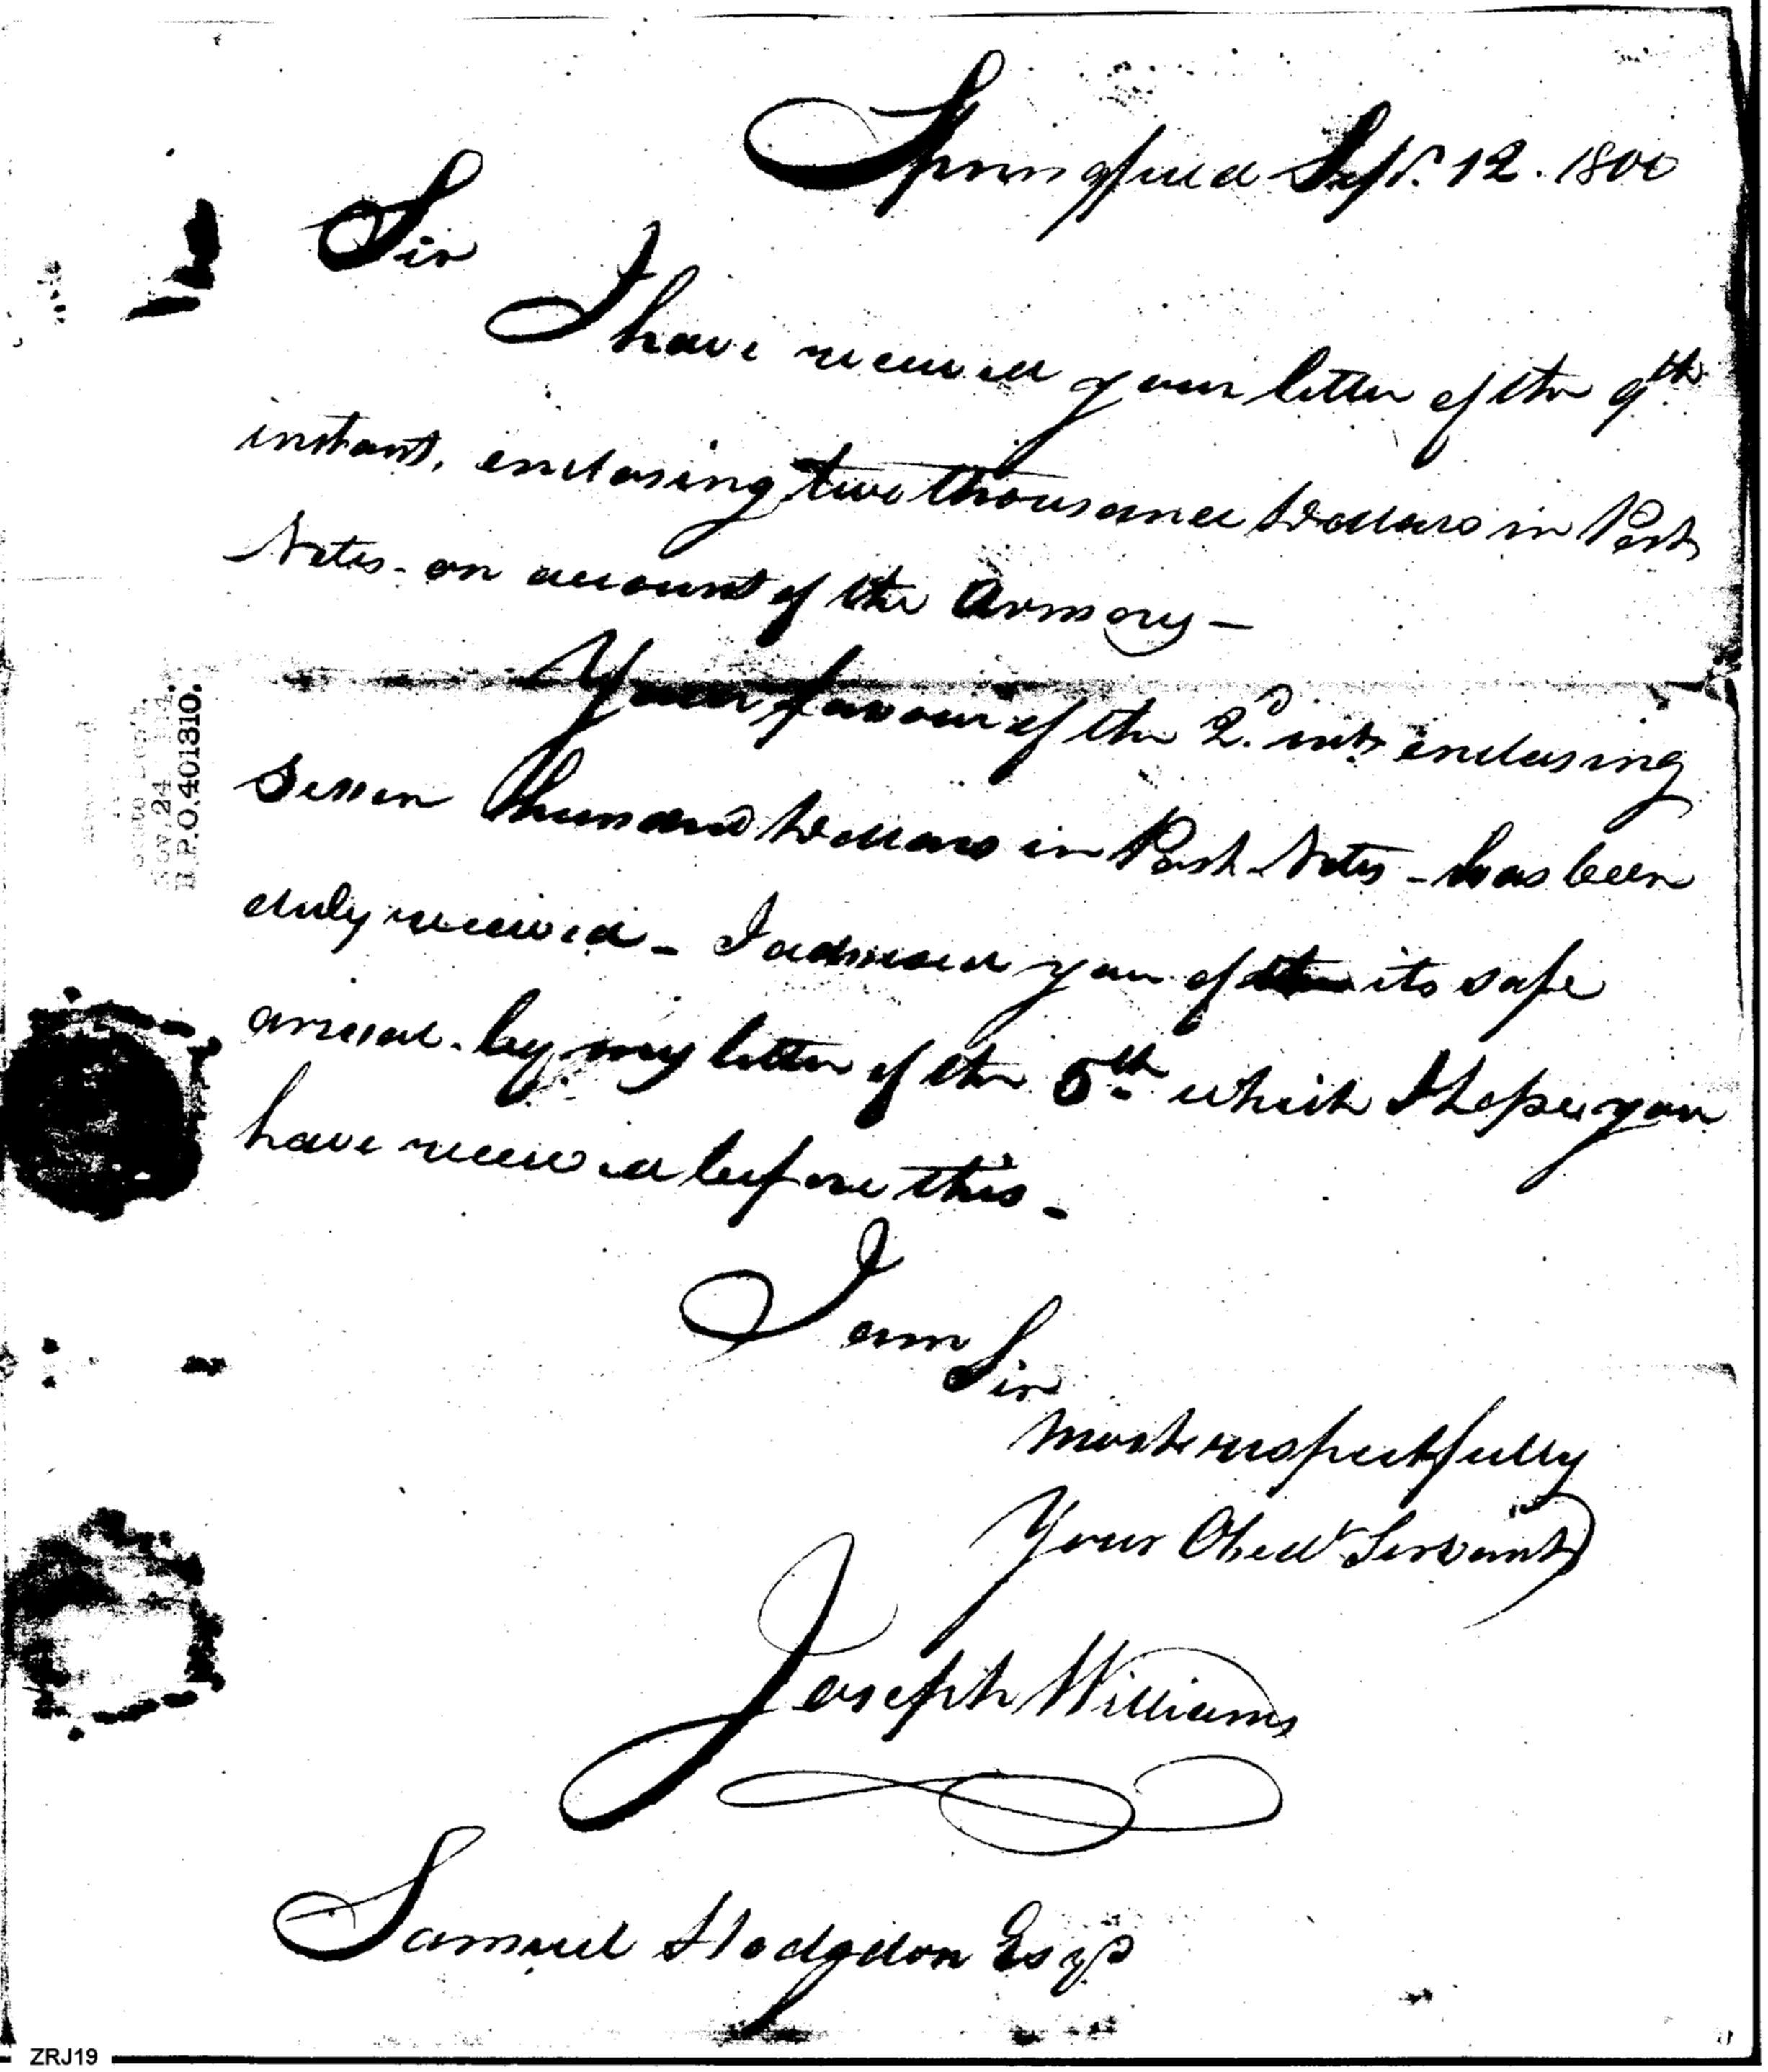 Springfield Sepr. 12. 1800
Sir
I have received your letter of the 9th
instant, enclosing two thousand Dollars in Post
Notes - on account of the Armory -
Your favour of the 2d. inst enclosing
Seven hundred Dollars in Post Notes - has been
duly received - I advised you of its safe
arrival - by my letter of the 5th which I hope you
have received before this -
I am
Sir
most respectfully
Your Obedt Servant
Joseph Williams
Samuel Hodgdon Esqr
NOV 24
P.O.401310.
ZRJ19